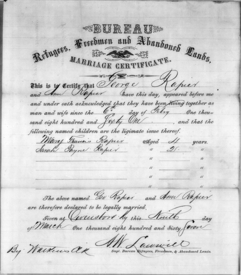 BUREAU
Refugees, Freedmen and Abandoned Lands.
MARRIAGE CERTIFICATE.
This is to Certify that George Rapier
and Ann Rapier have this day, appeared before me
and under oath acknowledged that they have been living together as
man and wife since the day of Feby One thou-
sand eight hundred and and that the
following named children are the legitimate issue thereof.
Mary Rapier Aged 4 years
Sarah Jayne Rapier " 2 "
The above named Geo Rapier and Ann Rapier
are therefore declared to be legally married.
Given at Owensboro Ky this Ninth day
of March one thousand eight hundred and sixty Seven
By
A W Lawwill
Supt. Bureau Refugees, Freedmen, & Abandoned Lands.